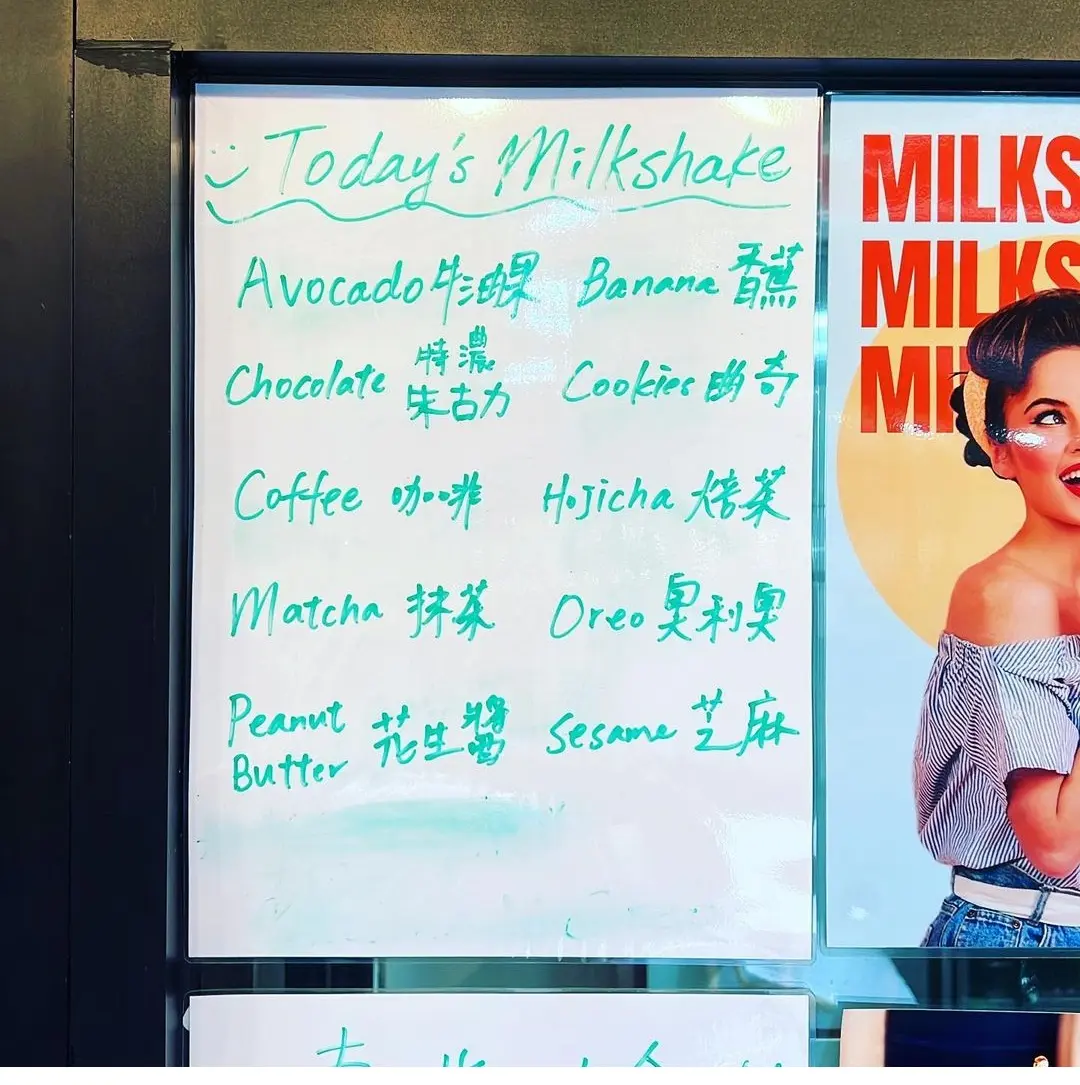 Today's Milkshake
Avocado 牛油果 Banana 香蕉
Chocolate 特濃朱古力 Cookies 曲奇
Coffee 咖啡 Hojicha 焙茶
Matcha 抹茶 Oreo 奧利奧
Peanut Butter 花生醬 Sesame 芝麻
MILKS
MILKS
MI